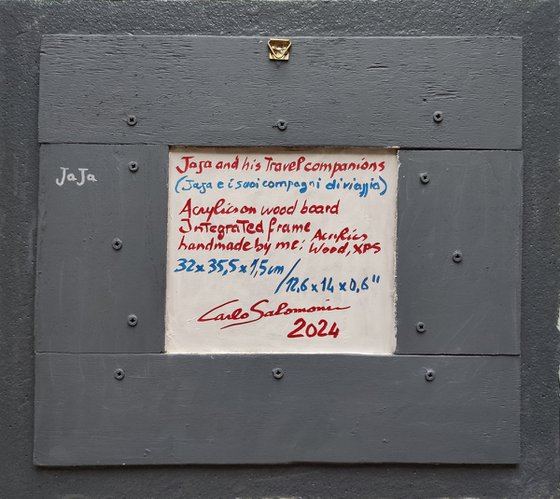 JaJa
Jaja and his Travel companions
(Jaja e i suoi compagni di viaggio)
Acrylic on wood board
Integrated frame
handmade by me: Acrylics
Wood, XPS
32 x 35,5 x 1,5 cm / 12,6 x 14 x 0,6"
Carlo Salomoni
2024